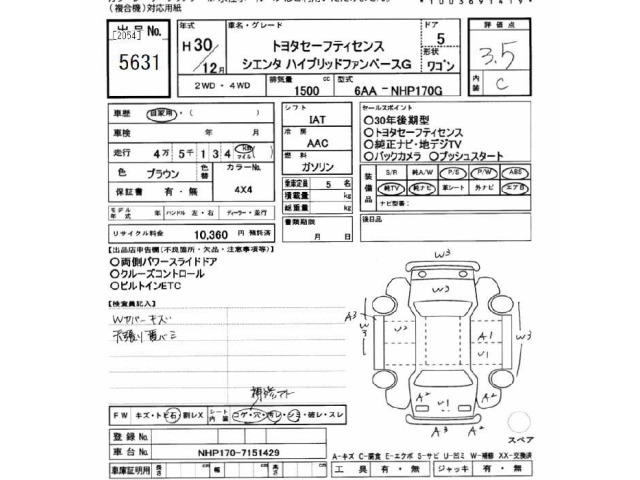 (複合機)対応用紙
*1003691419*
出品No.
[2054]
5631
年式
H30/12月
車名・グレード
トヨタセーフティセンス
シエンタ ハイブリッドファンベースG
ドア
5
形状
ワゴン
評価点
3.5
内装
C
2WD・4WD
排気量
1500
cc
型式
6AA－NHP170G
車歴
自家用・(　)
車検
年　月
走行
4万5千134
Km
マイル
色
ブラウン
色替
カラーNo.
4X4
保証書
有・無
モデル年式
年
ハンドル
左・右
ディーラー・並行
リサイクル料金
10,360
円
預託済
シフト
IAT
冷房
AAC
燃料
ガソリン
乗車定員
5
名
積載量
kg
総重量
kg
書類期限
月　日
セールスポイント
○30年後期型
○トヨタセーフティセンス
○純正ナビ・地デジTV
○バックカメラ ○プッシュスタート
装備品
S/R
純A/W
P/S
P/W
ABS
純TV
純ナビ
革シート
外ナビ
エアB
ナビ型番:
後日品
【出品店申告欄(不良箇所・欠品・注意事項等)】
○両側パワースライドドア
○クルーズコントロール
○ビルトインETC
【検査員記入】
Wカバーキズ
補修アト
FW
キズ・トビ石・割レX
シート内装
コゲ・穴・汚レ・シミ・破レ・スレ
登録No.
車台No.
NHP170-7151429
車庫証明用
長さ
cm
幅
cm
高さ
cm
W3
W3
A3
W3
W2
A1
W3
U1
A2
A2
U1
A3
A2
スペア
A-キズ C-腐食 E-エクボ S-サビ U-凹ミ W-補修 XX-交換済
工具
有・無
ジャッキ
有・無